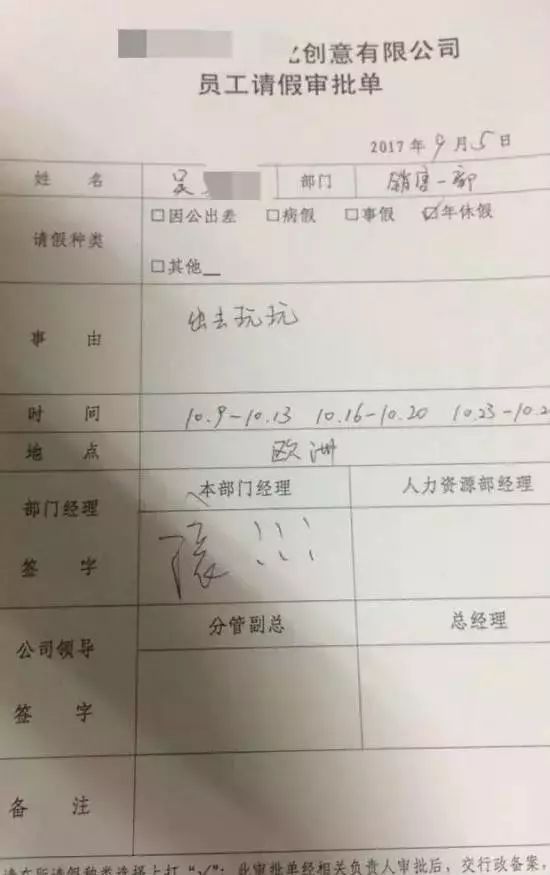 创意有限公司
员工请假审批单
2017 年 9 月 5 日
姓 名 吴 部门 销售一部
请假种类 □因公出差 □病假 □事假 ☑年休假
□其他__
事 由 出去玩玩
时 间 10.9-10.13 10.16-10.20 10.23-10.2
地 点 欧洲
部门经理 签字 本部门经理 人力资源部经理
!!!
公司领导 签字 分管副总 总经理
备 注
请在所请假种类选择上打“√”；此审批单经相关负责人审批后，交行政备案，